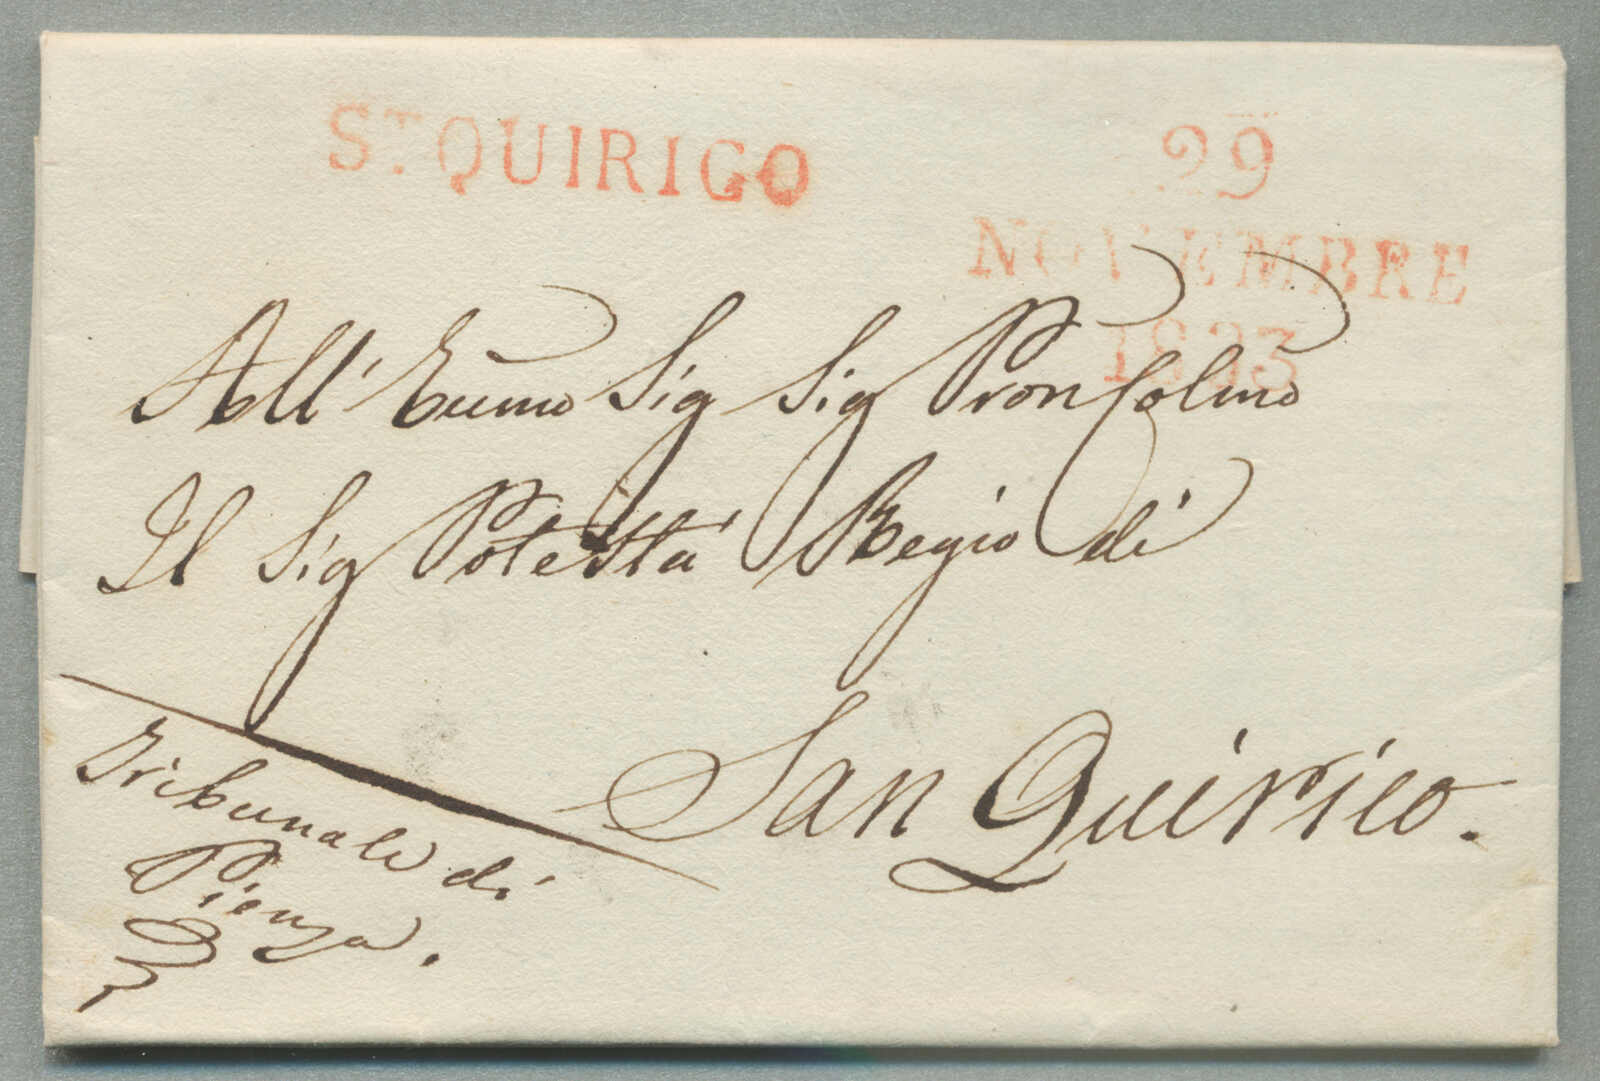 ST. QUIRICO
29
NOVEMBRE
1833
All' Eccmo Sig Sig Pron Colmo
Il Sig Potestà Regio di
San Quirico.
Tribunale di
Pienza.